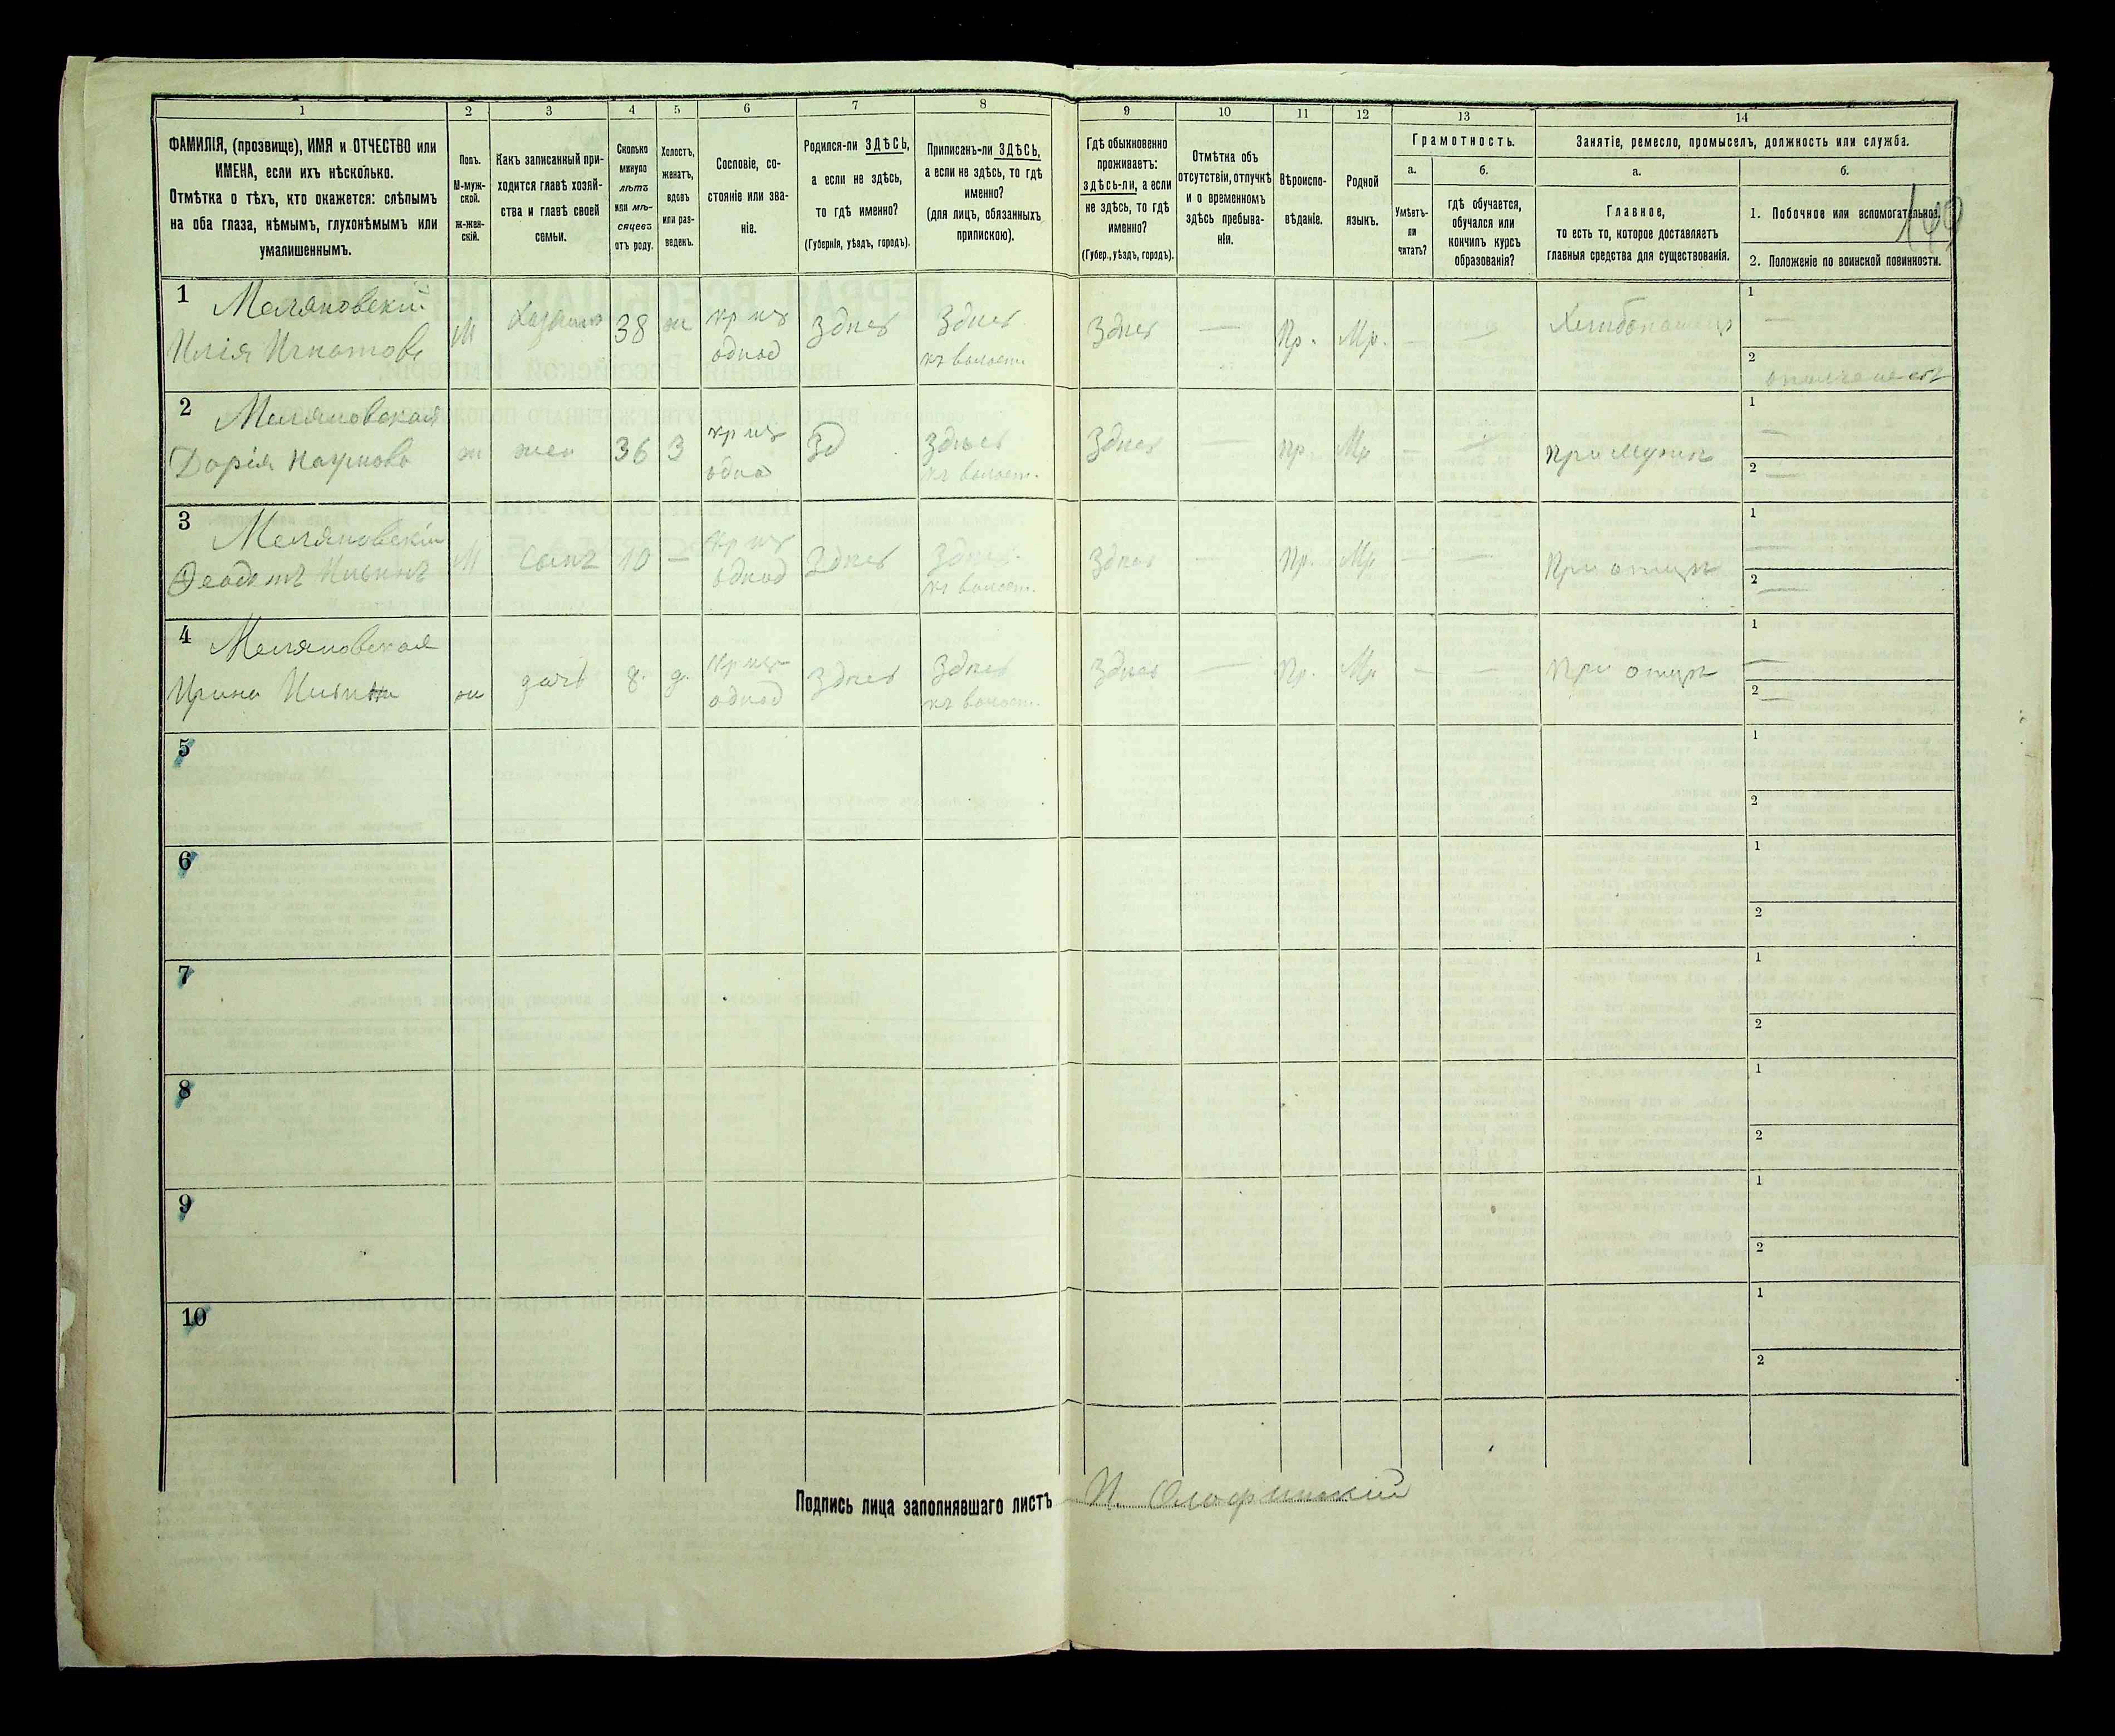 1 2 3 4 5 6 7 8 9 10 11 12 13 14
ФАМИЛІЯ, (прозвище), ИМЯ и ОТЧЕСТВО или
ИМЕНА, если ихъ нѣсколько.
Отмѣтка о тѣхъ, кто окажется: слѣпымъ
на оба глаза, нѣмымъ, глухонѣмымъ или
умалишеннымъ.
Полъ.
М-муж-
ской.
ж-жен-
скій.
Какъ записанный при-
ходится главѣ хозяй-
ства и главѣ своей
семьи.
Сколько
минуло
лѣтъ
или мѣ-
сяцевъ
отъ роду.
Холостъ,
женатъ,
вдовъ
или раз-
веденъ.
Сословіе, со-
стояніе или зва-
ніе.
Родился-ли ЗДѢСЬ,
а если не здѣсь,
то гдѣ именно?
(Губернія, уѣздъ, городъ).
Приписанъ-ли ЗДѢСЬ,
а если не здѣсь, то гдѣ
именно?
(для лицъ, обязанныхъ
припискою).
Гдѣ обыкновенно
проживаетъ:
здѣсь-ли, а если
не здѣсь, то гдѣ
именно?
(Губер., уѣздъ, городъ).
Отмѣтка объ
отсутствіи, отлучкѣ
и о временномъ
здѣсь пребыва-
ніи.
Вѣроиспо-
вѣданіе.
Родной
языкъ.
Грамотность.
а.
Умѣетъ-
ли
читать?
б.
гдѣ обучается,
обучался или
кончилъ курсъ
образованія?
Занятіе, ремесло, промыселъ, должность или служба.
а.
Главное,
то есть то, которое доставляетъ
главныя средства для существованія.
б.
1. Побочное или вспомогательное.
2. Положеніе по воинской повинности.
1 Меляновскій
Илія Игнатовъ
М
38 ж кр изъ
однод
Здѣсь Здѣсь
къ волост.
Здѣсь — Пр. Мр. — —
1 —
2
2 Меляновская
Дарія Наумова
ж жен 36 З кр изъ
однод
Зд Здѣсь
къ волост.
Здѣсь — Пр. Мр — —
при мужѣ
1 —
2 —
3 Меляновскій
Ѳеодотъ Ильинъ
М сынъ 10 — кр изъ
однод
Здѣсь Здѣсь
къ волост.
Здѣсь — Пр. Мр — —
При отцѣ
1 —
2 —
4 Меляновская
Ирина Ильина
ж дочь 8. д. кр изъ
однод
Здѣсь Здѣсь
къ волост.
Здѣсь — Пр. Мр — —
При отцѣ
1 —
2 —
5 1
2
6 1
2
7 1
2
8 1
2
9 1
2
10 1
2
Подпись лица заполнявшаго листъ